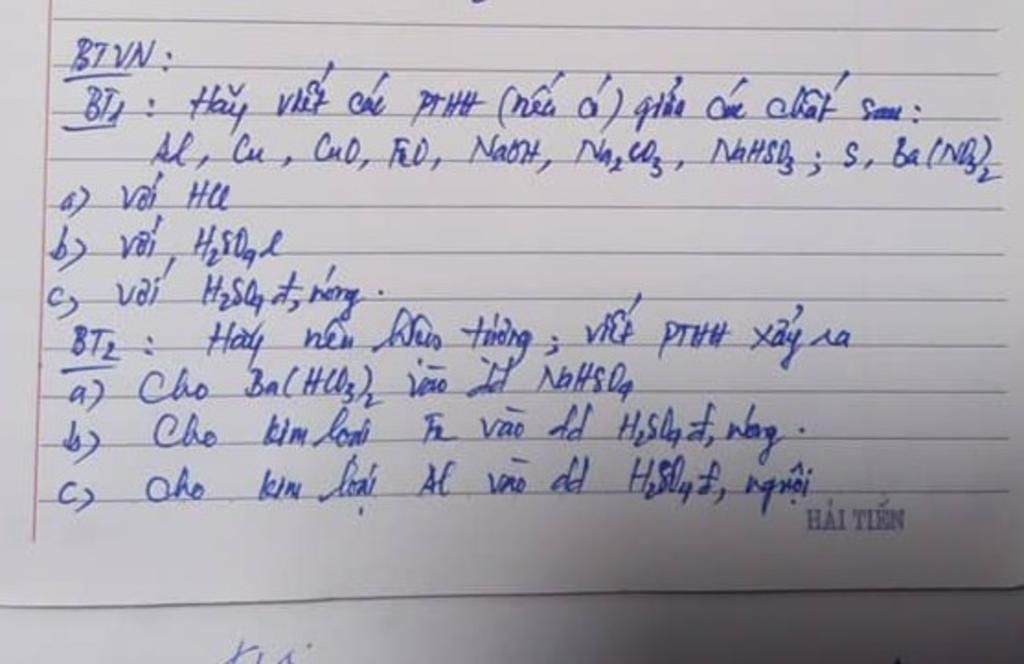 BTVN:
BT1: Hãy viết các PTHH (nếu có) giữa các chất sau:
Al, Cu, CuO, FeO, NaOH, Na2CO3, NaHSO3; S, Ba(NO3)2
a) với HCl
b) với, H2SO4 l
c) với H2SO4 đ, nóng.
BT2: Hãy nêu hiện tượng; viết PTHH xảy ra
a) Cho Ba(HCO3)2 vào dd NaHSO4
b) Cho kim loại Fe vào dd H2SO4 đ, nóng.
c) Cho kim loại Al vào dd H2SO4 đ, nguội
HẢI TIẾN